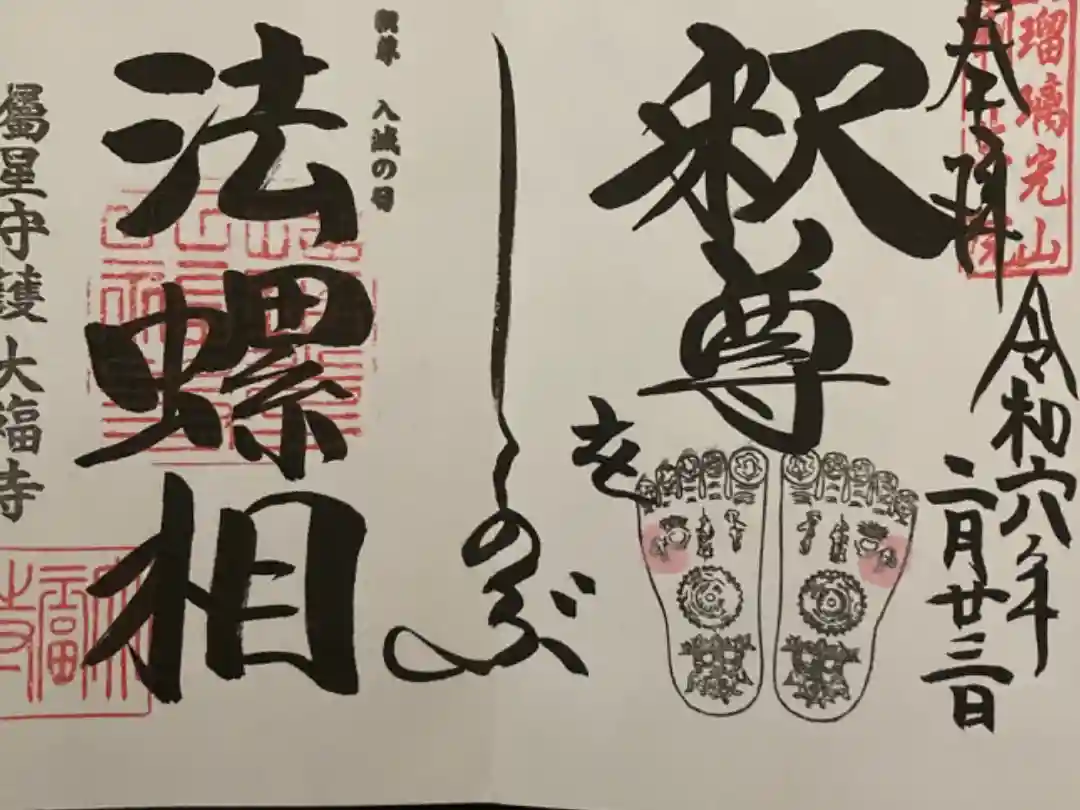 瑠璃光山
奉拝
令和六年
二月廿三日
釈尊
を
しのぶ
釈尊 入滅の日
法螺相
屬星守護 大福寺